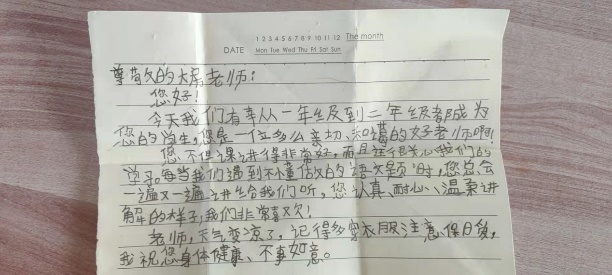 1 2 3 4 5 6 7 8 9 10 11 12 The month
DATE Mon Tue Wed Thu Fri Sat Sun
尊敬的大席老师:
您好!
今天我们有幸从一年级到二年级都成为
您的学生,您是一位多么亲切、和蔼的好老师啊!
您不但课讲得非常好,而且还很关心我们的
学习。每当我们遇到不懂的语文题时,您总会
一遍又一遍讲给我们听,您认真、耐心、温柔讲
解的样子,我们非常喜欢!
老师,天气变凉了,记得多穿衣服注意保日爰,
我祝您身体健康、不事如意。